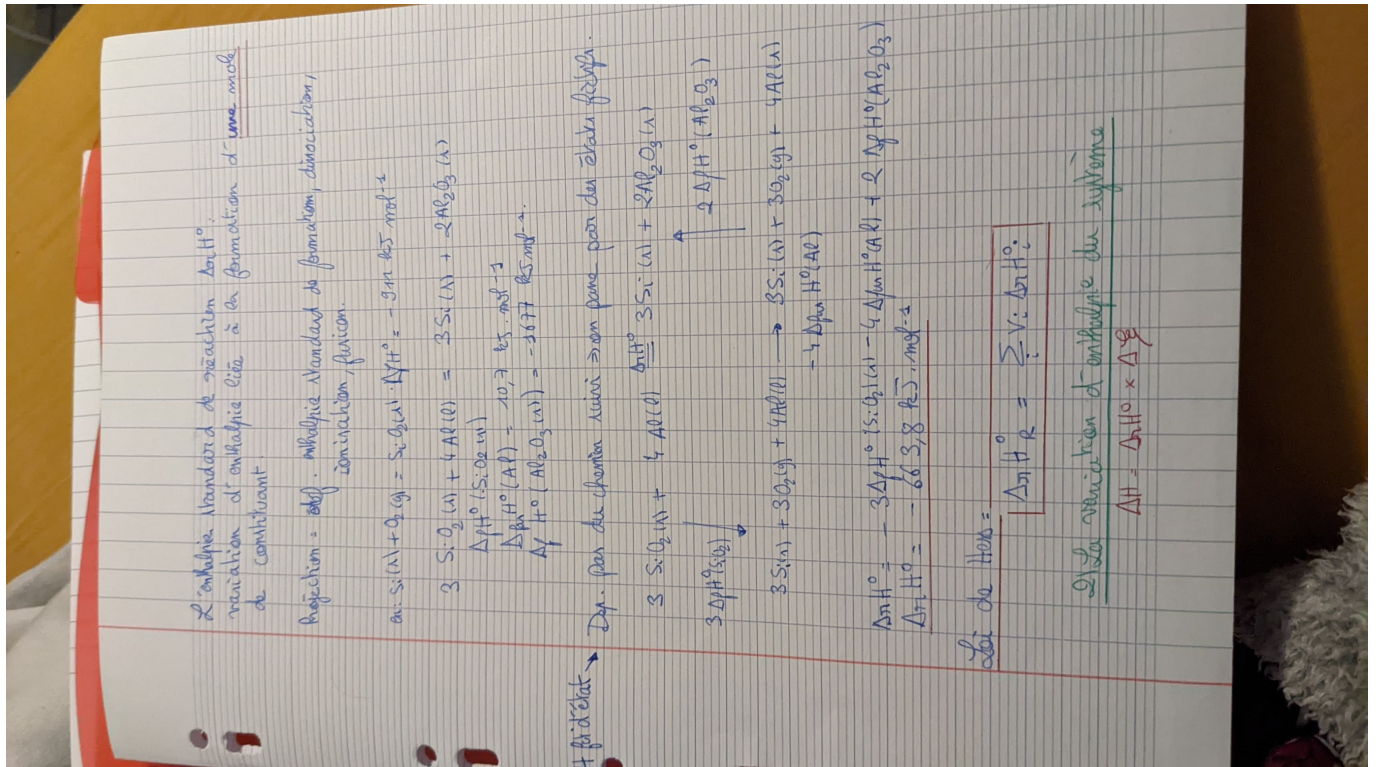 L'enthalpie standard de réaction ΔrH°.
variation d'enthalpie liée à la formation d'une mole
de constituant.
Réaction = enthalpie standard de formation, dissociation,
ionisation, fusion.
ex: Si(s) + O2(g) = SiO2(s) ΔfH° = - 911 kJ mol-1
3 SiO2(s) + 4 Al(l) = 3Si(s) + 2Al2O3(s)
ΔfH° (SiO2(s))
ΔfusH° (Al) = 10,7 kJ. mol-1
ΔfH° (Al2O3(s)) = -1677 kJ mol-1.
+ fct d'état → Dep. pas du chemin suivi => on passe par des états fictifs.
3 SiO2(s) + 4 Al(l) ΔrH° 3Si(s) + 2Al2O3(s)
3ΔfH°(SiO2) 2 ΔfH°(Al2O3)
3Si(s) + 3O2(g) + 4Al(l) → 3Si(s) + 3O2(g) + 4Al(s)
-4ΔfusH°(Al)
ΔrH° = - 3ΔfH°(SiO2)(s) - 4ΔfusH°(Al) + 2 ΔfH°(Al2O3)
ΔrH° = - 663,8 kJ. mol-1
Loi de Hess = ΔrH°R = Σi Vi ΔrH°i
2) La variation d'enthalpie du système
ΔH = ΔrH° × Δξ